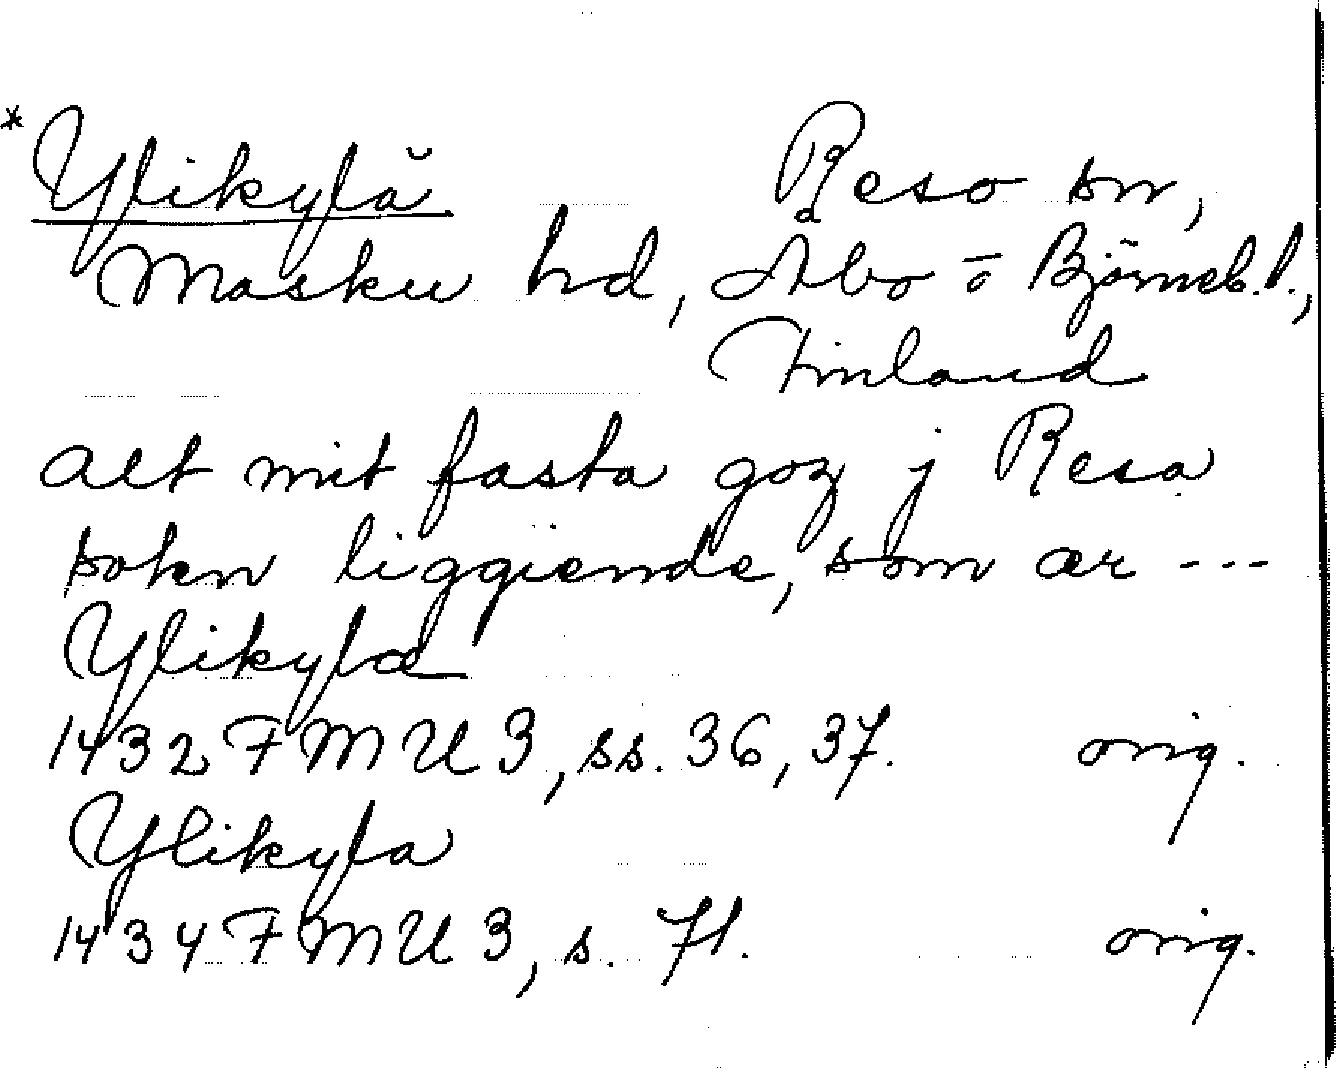 * Ylikylä Reso sn,
Masku hd, Åbo o Björneb. l.,
Finland
alt mit fasta goz j Resa
sokn liggiende, som ær ---
Ylikylæ
1432 FMU 3, ss. 36, 37. orig.
Ylikyla
1434 FMU 3, s. 71. orig.